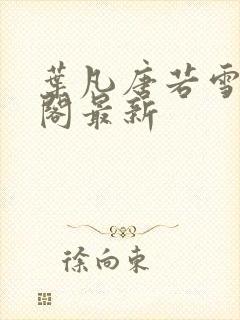 葉凡唐若雪
閣最新
徐向東